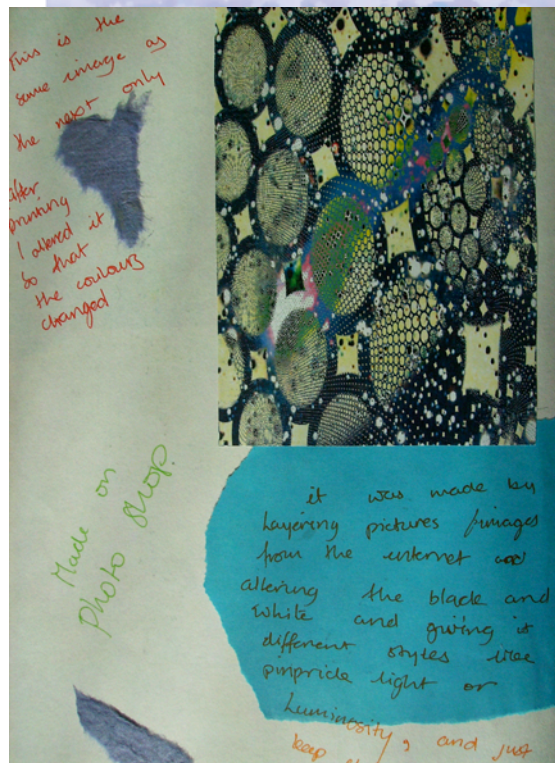 This is the
same image as
the next only
After
printing
I altered it
so that
the coulours
changed
Made on
Photo shop.
it was made by
Layering pictures /images
from the internet and
altering the black and
white and giving it
different styles like
pinprick light or
Luminosity, and just
keep